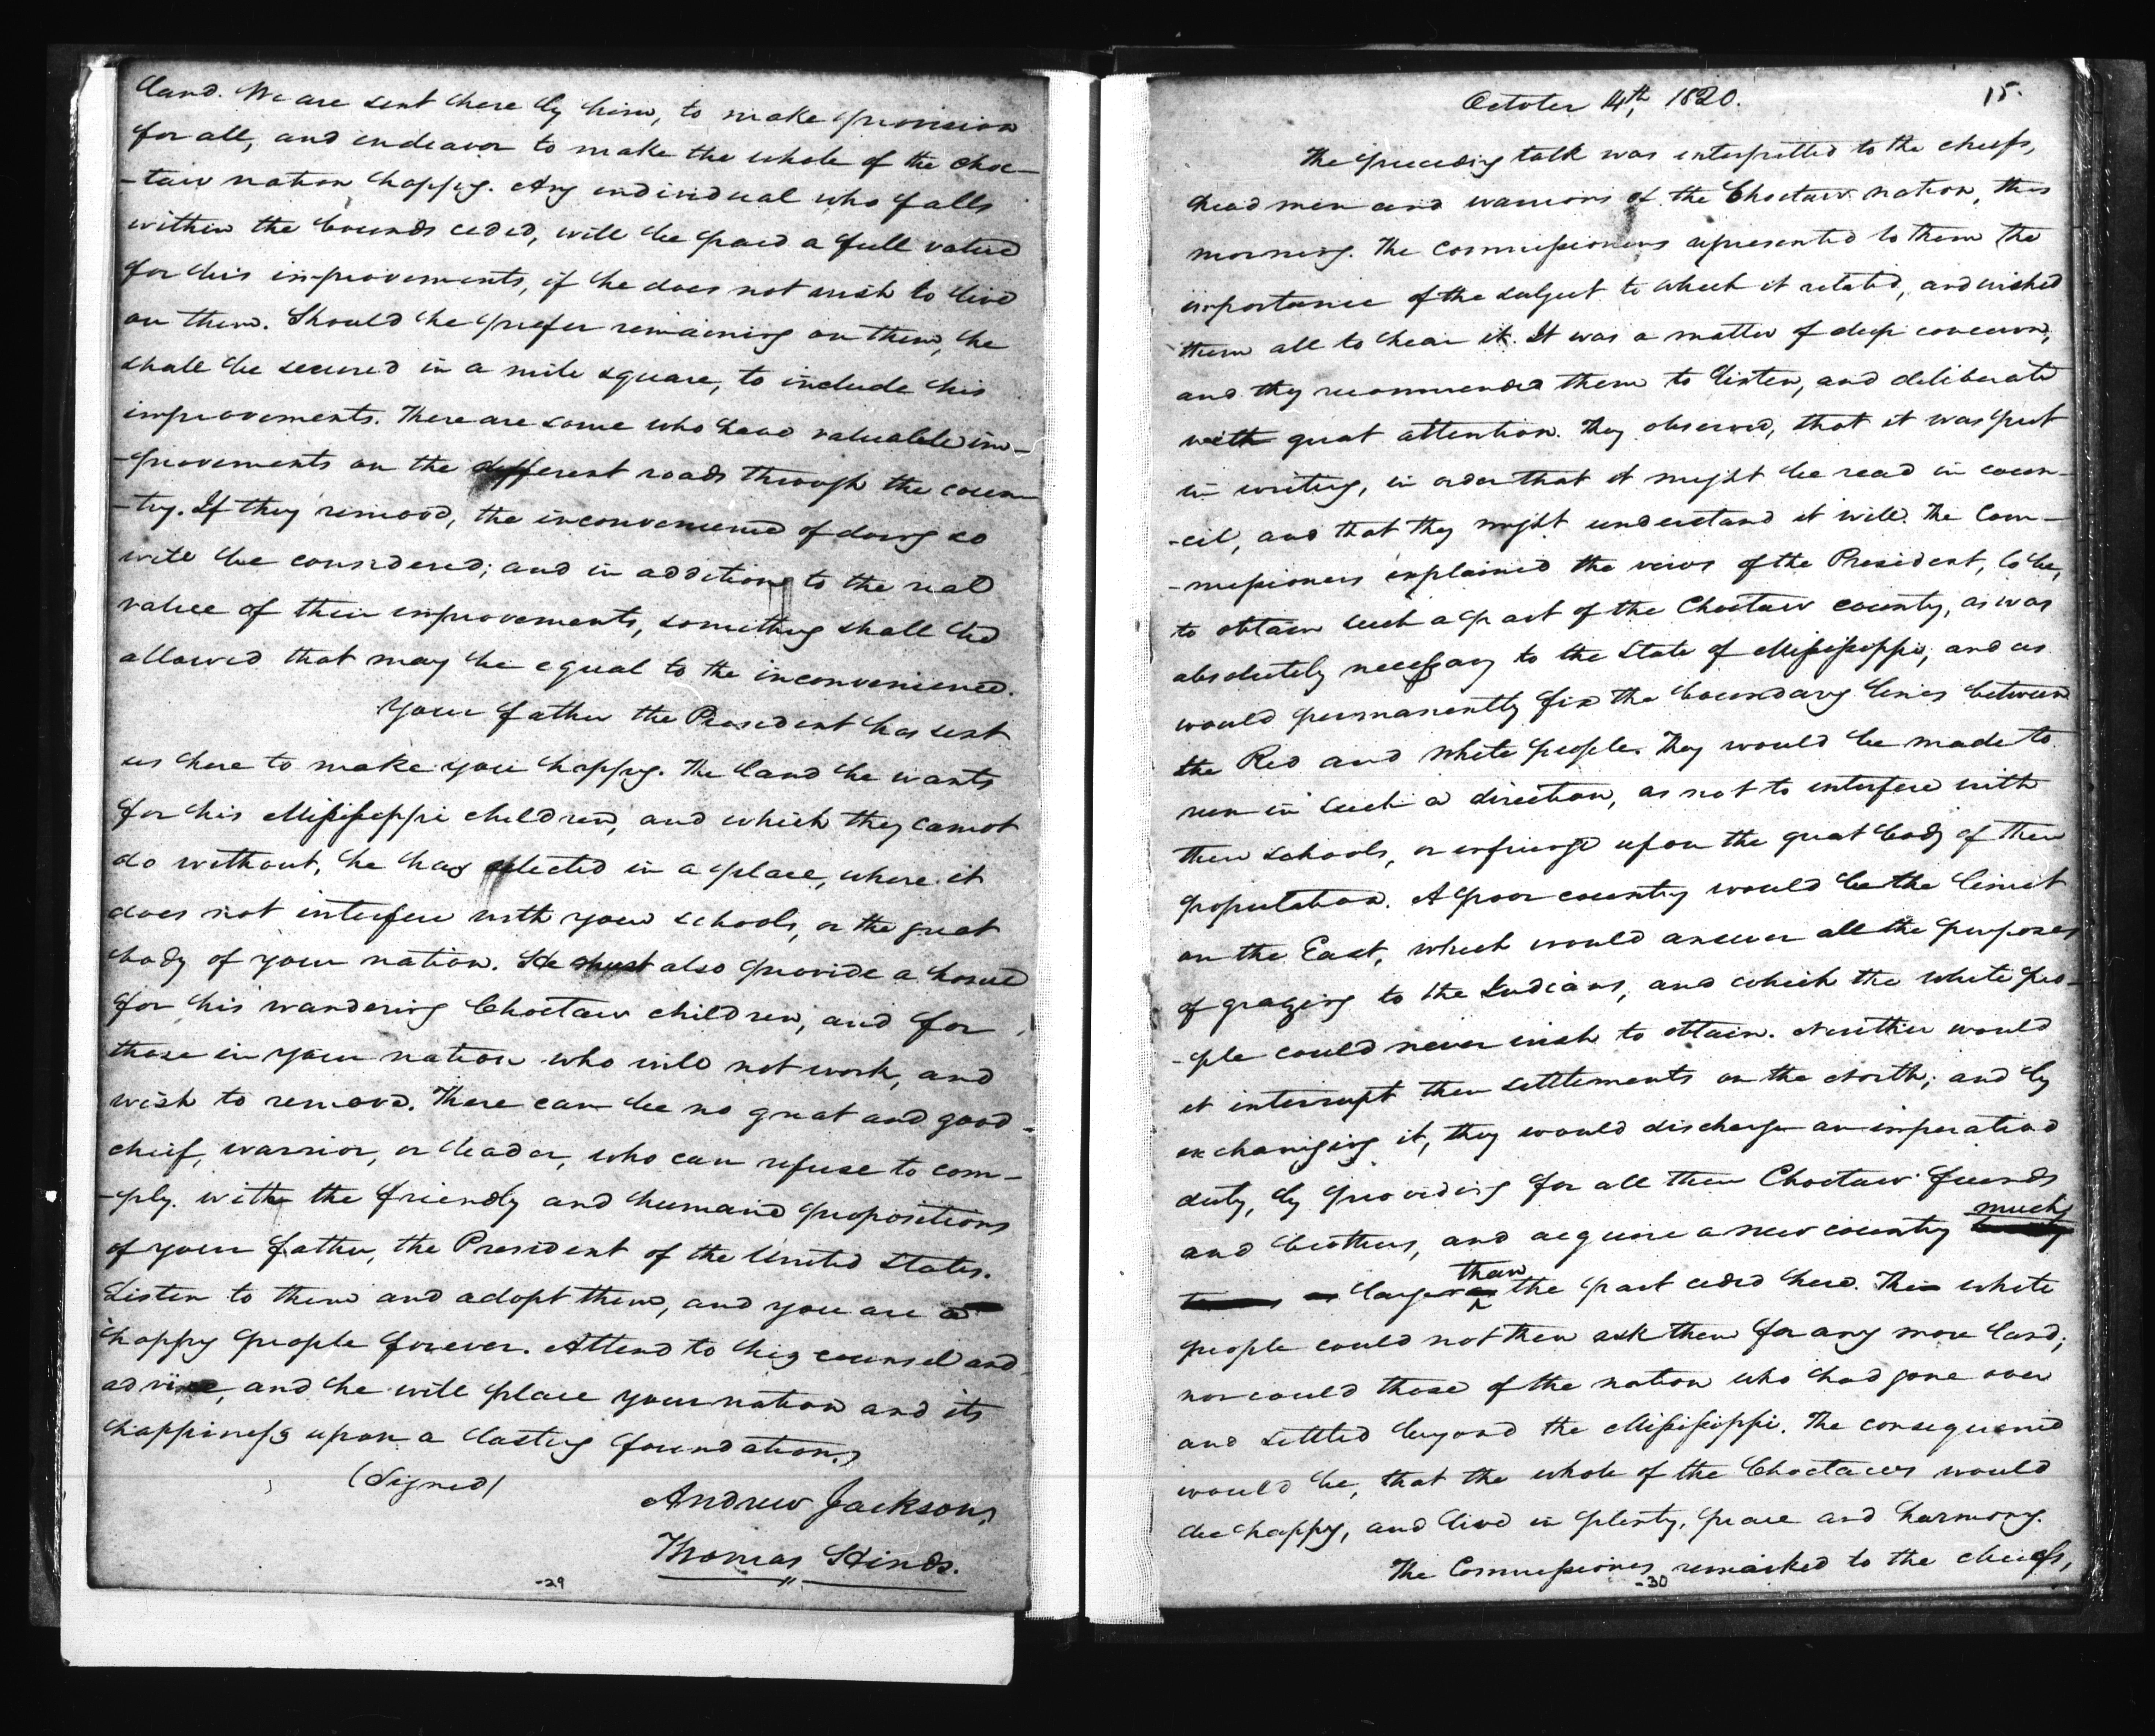 land. We are sent here by him, to make provision
for all, and endeavor to make the whole of the Choc-
-taw nation happy. Any individual who falls
within the bounds ceded, will be paid a full value
for his improvements, if he does not wish to live
on them. Should he prefer remaining on them, he
shall be secured in a mile square, to include his
improvements. There are some who have valuable im-
-provements on the different roads through the coun-
-try. If they remove, the inconvenience of doing so
will be considered; and in addition to the real
value of their improvements, something shall be
allowed that may be equal to the inconvenience.
Your father the President has sent
us here to make you happy. The land he wants
for his Mississippi children, and which they cannot
do without, he has selected in a place, where it
does not interfere with your schools, or the great
body of your nation. He must also provide a home
for his wandering Choctaw children, and for
those in your nation who will not work, and
wish to remove. There can be no great and good
chief, warrior, or leader, who can refuse to com-
-ply with the friendly and humane propositions
of your father, the President of the United States.
Listen to them and adopt them, and you are a
happy people forever. Attend to his counsel and
advice, and he will place your nation and its
happiness upon a lasting foundation.
(Signed)
Andrew Jackson,
Thomas Hinds.
-29
October 14th, 1820.
15.
The preceding talk was interpretted to the chiefs,
head men and warriors of the Choctaw nation, this
morning. The commissioners represented to them the
importance of the subject to which it related, and wished
them all to hear it. It was a matter of deep concern,
and they recommended them to listen, and deliberate
with great attention. They observed, that it was put
in writing, in order that it might be read in coun-
-cil, and that they might understand it well. The Com-
-missioners explained the views of the President, to be,
to obtain such a part of the Choctaw country, as was
absolutely necessary to the State of Mississippi; and as
would permanently fix the boundary lines between
the Red and White people. They would be made to
run in such a direction, as not to interfere with
their schools, or infringe upon the great body of their
population. A poor country would be the limit
on the East, which would answer all the purposes
of grazing to the Indians, and which the white peo-
-ple could never wish to obtain. Neither would
it interrupt their settlements on the North; and by
exchanging it, they would discharge an imperative
duty, by providing for all their Choctaw friends
and brothers, and acquire a new country much
larger than the part ceded here. The white
people could not then ask them for any more land;
nor could those of the nation who had gone over
and settled beyond the Mississippi. The consequence
would be, that the whole of the Choctaws would
be happy, and live in plenty, peace and harmony.
The Commissioners remarked to the chiefs,
-30